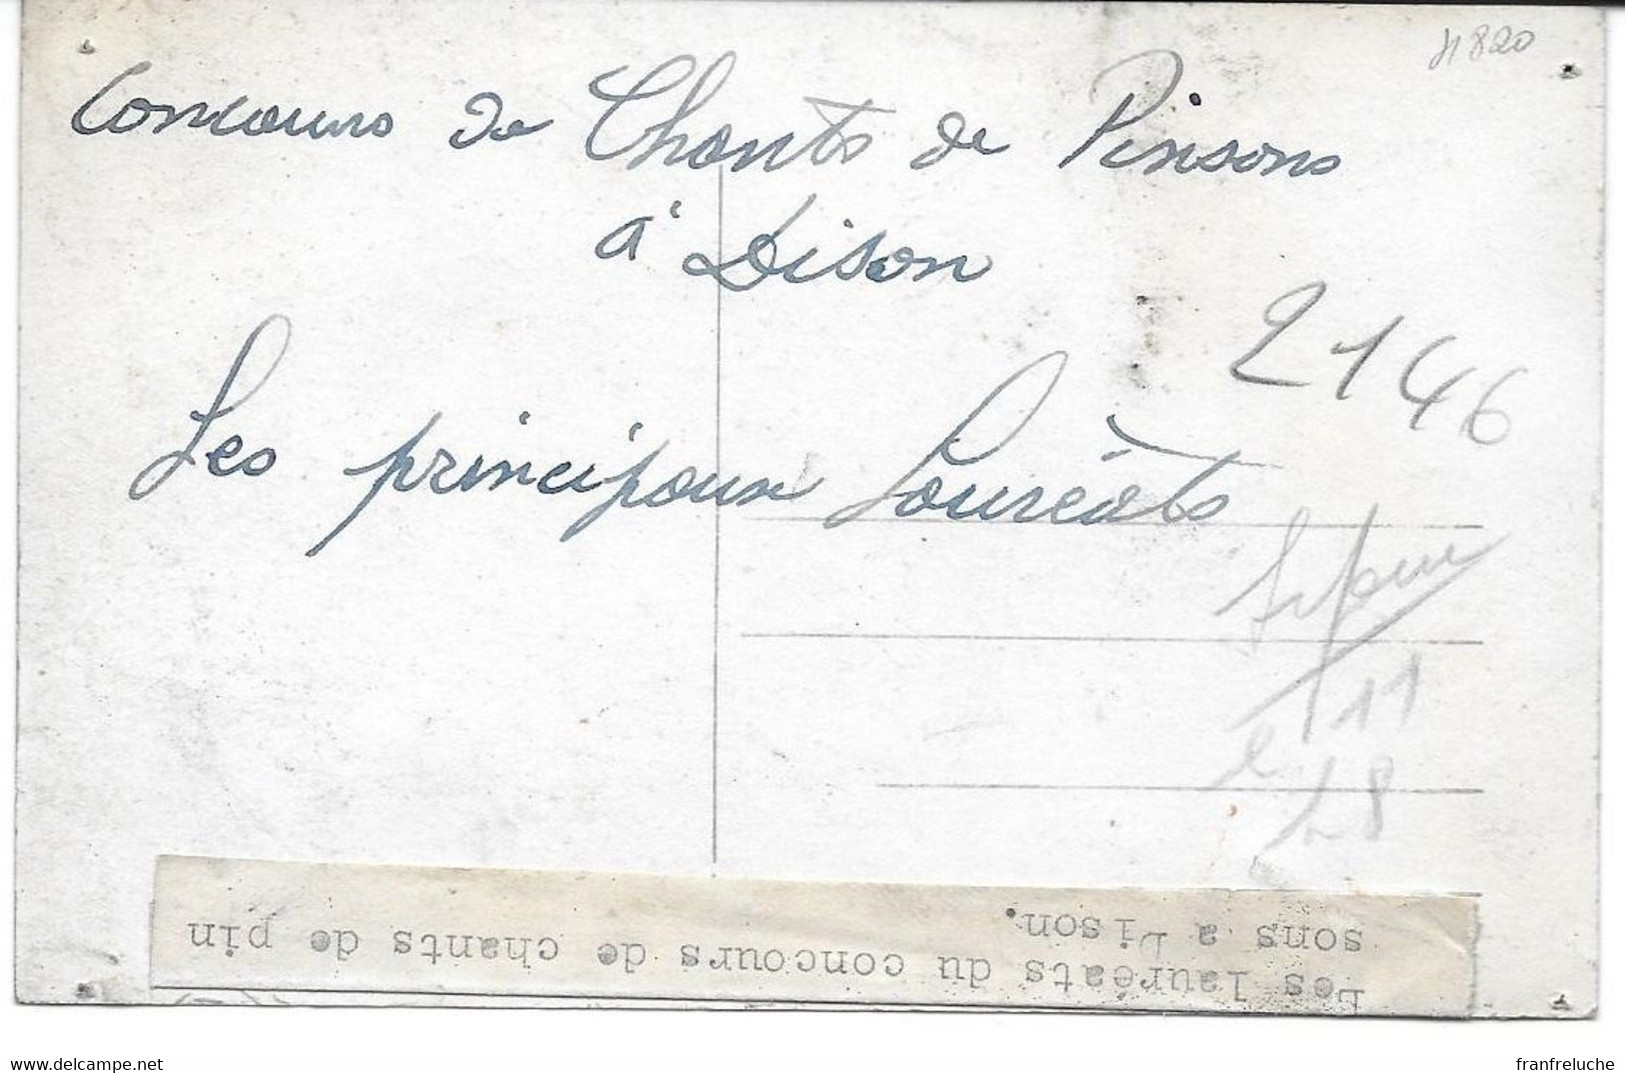 4820
Concours de Chants de Pinsons
à Dison
2146
Les principaux Lauréats
11
28
Les lauréats du concours de chants de pin
sons a Dison.
www.delcampe.net
franfreluche